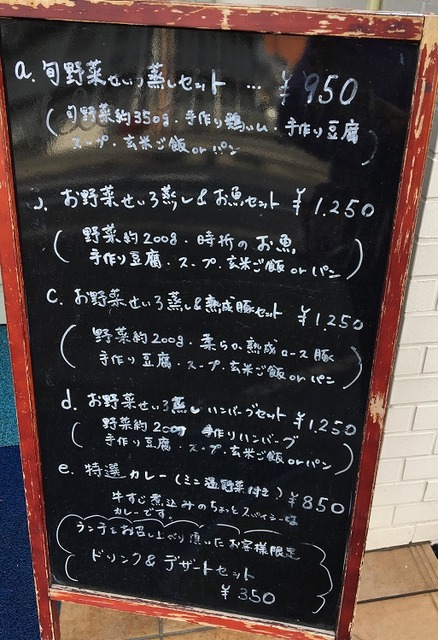 a. 旬野菜せいろ蒸しセット … ¥950
(旬野菜約350g・手作り鶏ハム・手作り豆腐
スープ・玄米ご飯orパン)
お野菜せいろ蒸し&お魚セット ¥1,250
(野菜約200g・時折のお魚
手作り豆腐・スープ・玄米ご飯orパン)
c. お野菜せいろ蒸し&熟成豚セット ¥1,250
(野菜約200g・柔らか熟成ロース豚
手作り豆腐・スープ・玄米ご飯orパン)
d. お野菜せいろ蒸しハンバーグセット ¥1,250
(野菜約200g 手作りハンバーグ
手作り豆腐・スープ・玄米ご飯orパン)
e. 特選カレー(ミニ温野菜付き) ¥850
牛すじ煮込みのちょっとスパイシーな
カレーです。
ランチをお召し上がり頂いたお客様限定
ドリンク&デザートセット
¥350